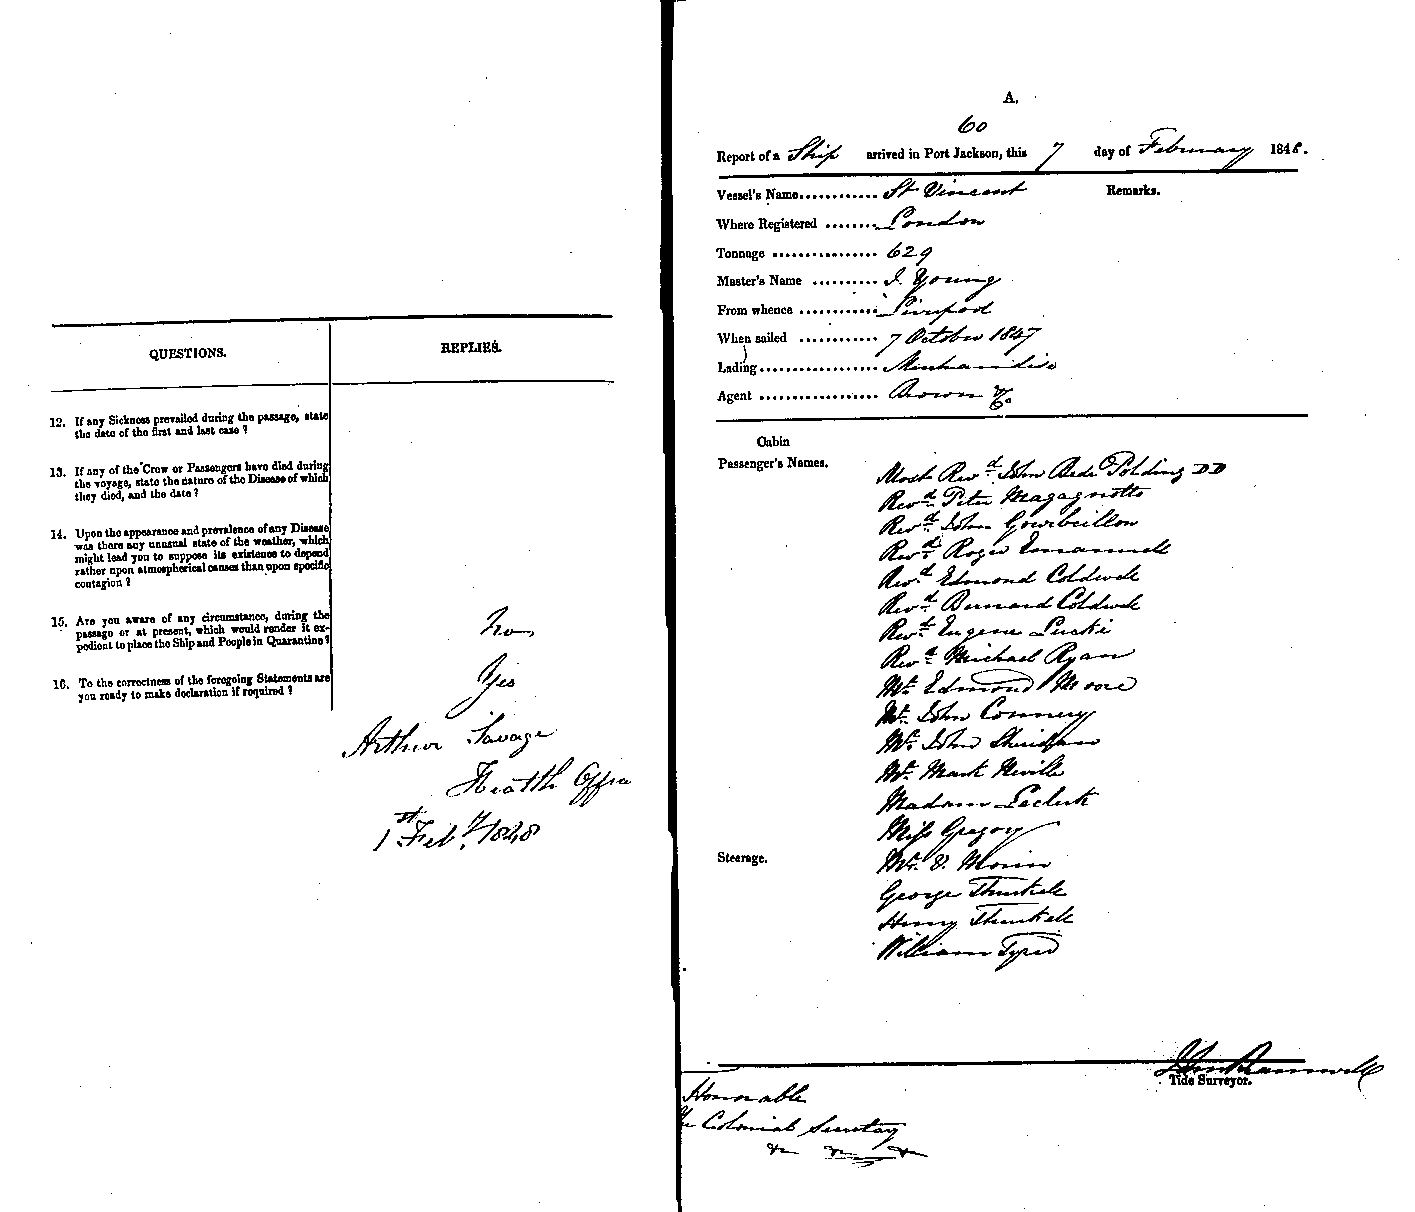 QUESTIONS. REPLIES.
12. If any Sickness prevailed during the passage, state
the date of the first and last case ?
13. If any of the Crew or Passengers have died during
the voyage, state the nature of the Disease of which
they died, and the date ?
14. Upon the appearance and prevalence of any Disease
was there any unusual state of the weather, which
might lead you to suppose its existence to depend
rather upon atmospherical causes than upon specific
contagion ?
15. Are you aware of any circumstance, during the
passage or at present, which would render it ex-
pedient to place the Ship and People in Quarantine ?
No
16. To the correctness of the foregoing Statements are
you ready to make declaration if required ?
Yes
Arthur Savage
Health Office
1st Feby. 1848
A.
60
Report of a Ship arrived in Port Jackson, this 7 day of February 1848.
Vessel's Name............ St Vincent Remarks.
Where Registered ........ London
Tonnage ................ 629
Master's Name .......... J. Young
From whence ............ Liverpool
When sailed ............ 7 October 1847
Lading.................. Merchandise
Agent .................. Brown & Co.
Cabin
Passenger's Names.
Most Revd. John Bede Polding DD
Revd. Peter Magagnotto
Revd. John Gourbeillon
Revd. Roger Emanuell
Revd. Edmond Coldwell
Revd. Bernard Coldwell
Revd. Eugene Luckie
Revd. Michael Ryan
Mr. Edmond Moore
Mr. John Connery
Mr. John Sheridan
Mr. Mark Neville
Madam Leclerk
Miss Gregory
Steerage. Mr. V. Morin
George Thurkell
Henry Thurkell
William Tyred
John Bramwell
Tide Surveyor.
Honorable
The Colonial Secretary